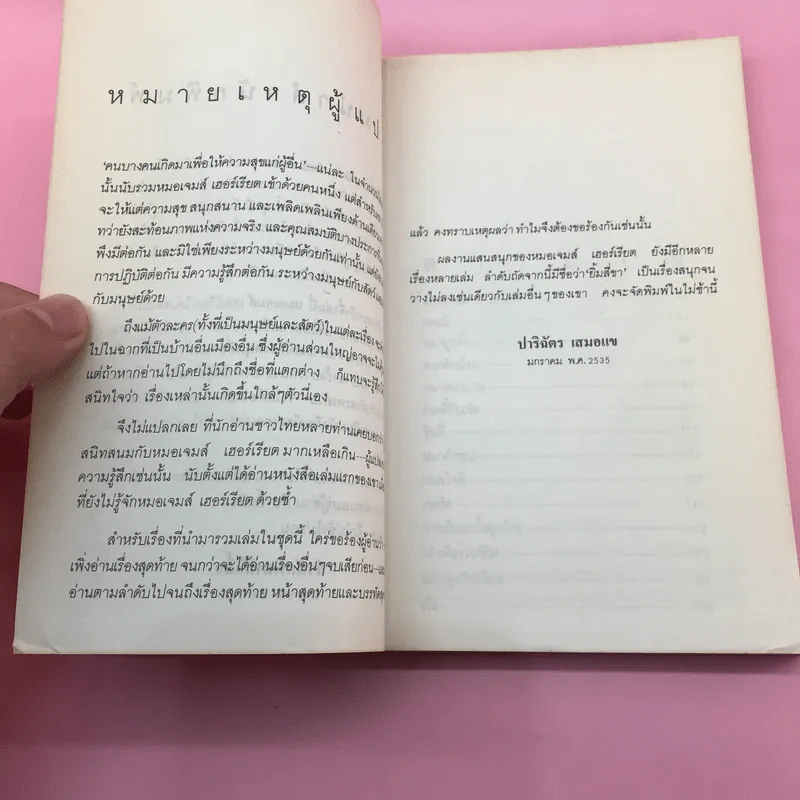 หมายเหตุผู้แป
'คนบางคนเกิดมาเพื่อให้ความสุขแก่ผู้อื่น'—แน่ละ ในจำนวน
นั้นนับรวมหมอเจมส์ เฮอร์เรียต เข้าด้วยคนหนึ่ง แต่สำหรับ
จะให้แต่ความสุข สนุกสนาน และเพลิดเพลินเพียงด้านเดียว
ทว่ายังสะท้อนภาพแห่งความจริง และคุณสมบัติบางประการที่
พึงมีต่อกัน และมิใช่เพียงระหว่างมนุษย์ด้วยกันเท่านั้น แต่
การปฏิบัติต่อกัน มีความรู้สึกต่อกัน ระหว่างมนุษย์กับสัตว์ และ
กับมนุษย์ด้วย
ถึงแม้ตัวละคร(ทั้งที่เป็นมนุษย์และสัตว์)ในแต่ละเรื่อง จะ
ไปในฉากที่เป็นบ้านอื่นเมืองอื่น ซึ่งผู้อ่านส่วนใหญ่อาจจะไม่
แต่ถ้าหากอ่านไปโดยไม่นึกถึงชื่อที่แตกต่าง ก็แทบจะรู้สึก
สนิทใจว่า เรื่องเหล่านั้นเกิดขึ้นใกล้ๆตัวนี่เอง
จึงไม่แปลกเลย ที่นักอ่านชาวไทยหลายท่านเคยบอก
สนิทสนมกับหมอเจมส์ เฮอร์เรียต มากเหลือเกิน—ผู้แปล
ความรู้สึกเช่นนั้น นับตั้งแต่ได้อ่านหนังสือเล่มแรกของเขา
ที่ยังไม่รู้จักหมอเจมส์ เฮอร์เรียต ด้วยซ้ำ
สำหรับเรื่องที่นำมารวมเล่มในชุดนี้ ใคร่ขอร้องผู้อ่าน
เพิ่งอ่านเรื่องสุดท้าย จนกว่าจะได้อ่านเรื่องอื่นๆจบเสียก่อน—
อ่านตามลำดับไปจนถึงเรื่องสุดท้าย หน้าสุดท้ายและบรรทัด
แล้ว คงทราบเหตุผลว่า ทำไมจึงต้องขอร้องกันเช่นนั้น
ผลงานแสนสนุกของหมอเจมส์ เฮอร์เรียต ยังมีอีกหลาย
เรื่องหลายเล่ม ลำดับถัดจากนี้มีชื่อว่า'ยิ้มสี่ขา' เป็นเรื่องสนุกจน
วางไม่ลงเช่นเดียวกับเล่มอื่นๆของเขา คงจะจัดพิมพ์ในไม่ช้านี้
ปาริฉัตร เสมอแข
มกราคม พ.ศ.2535